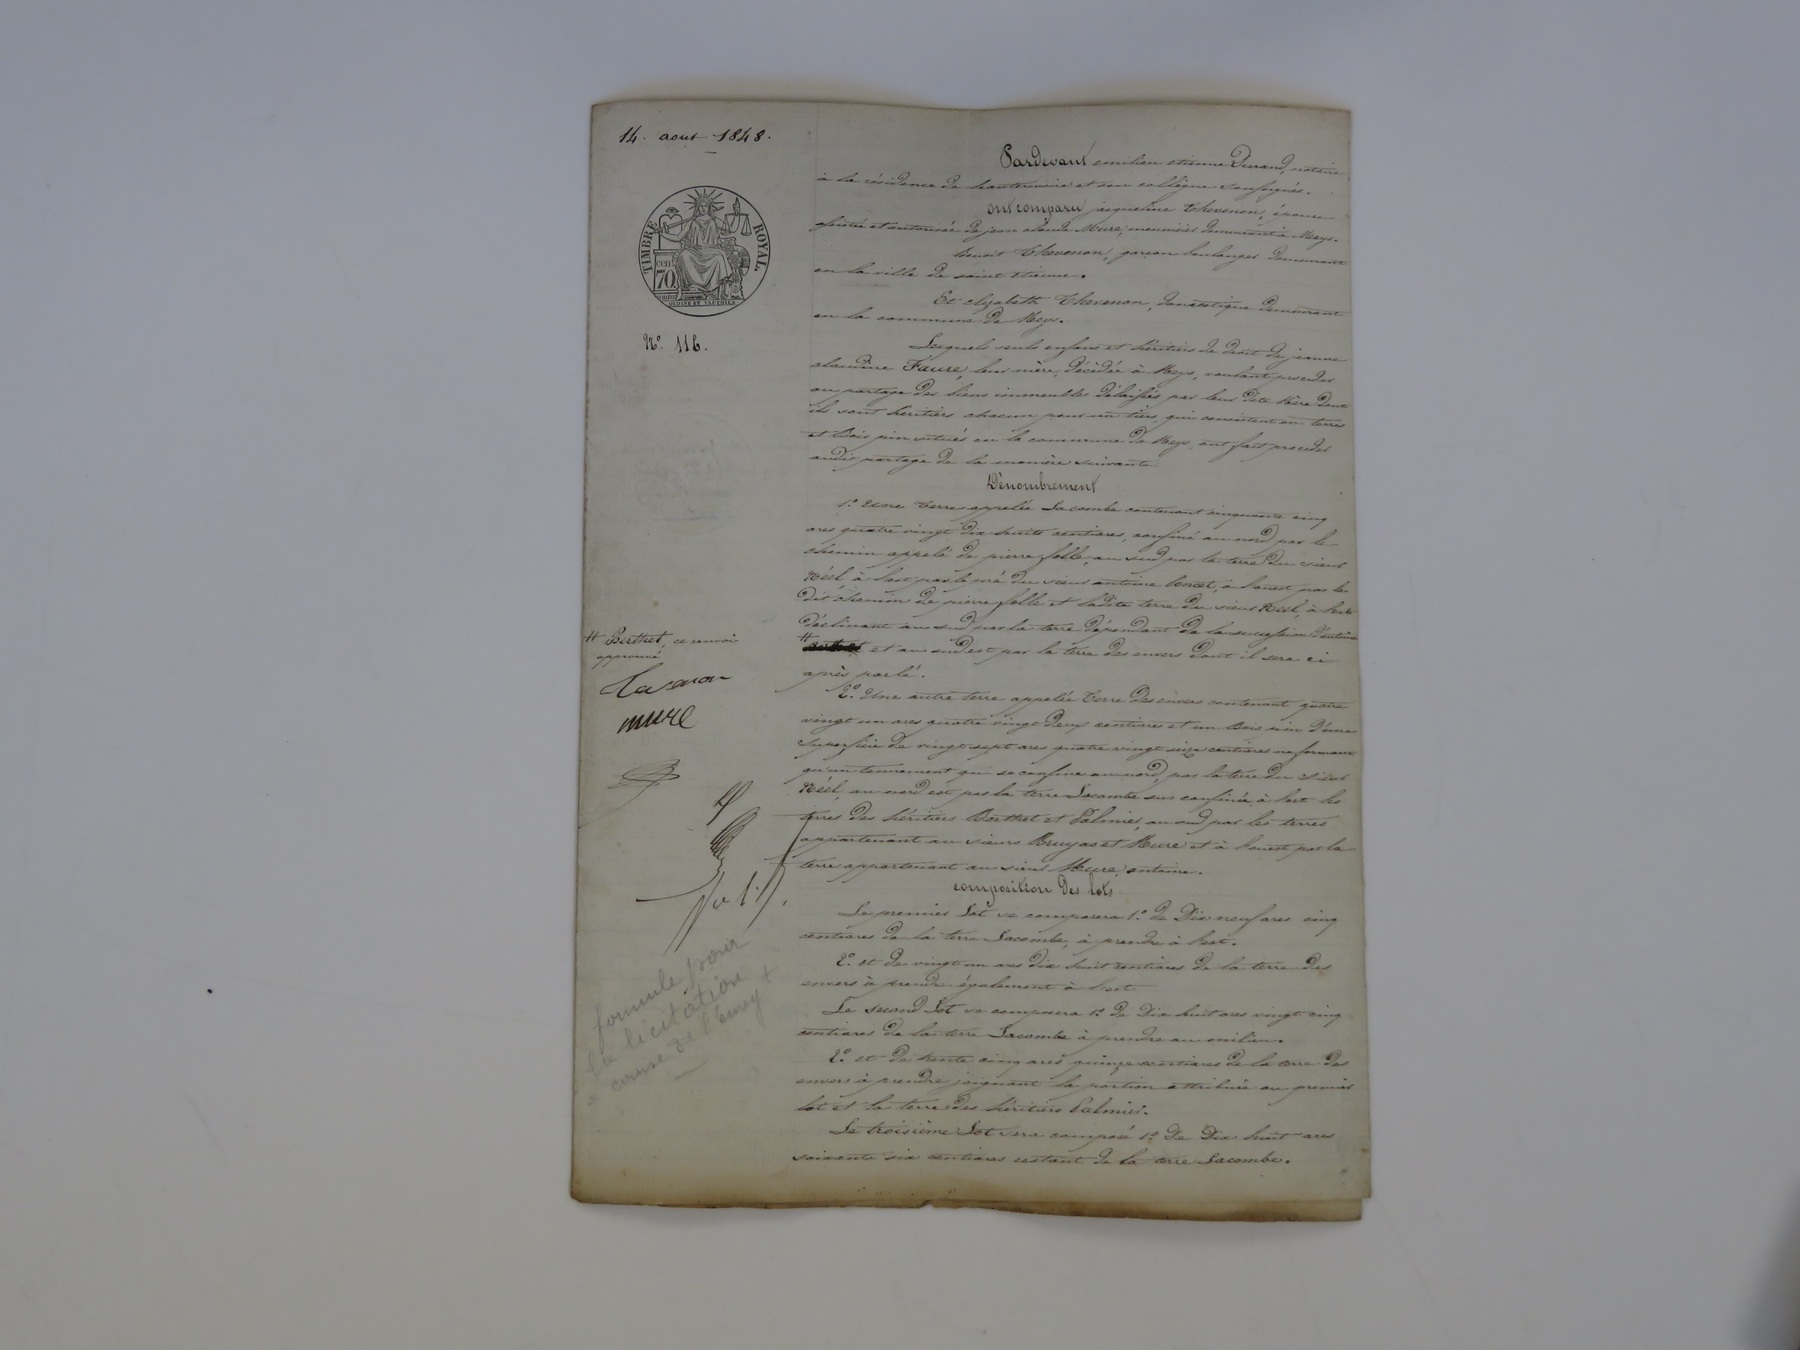 14. aout 1848.
TIMBRE ROYAL
cen
70
N.° 116.
Pardevant emilien etienne Durand, notaire
à la résidence de hauterivoire et son collègue soussignés.
ont comparu jacqueline Thevenon, épouse
assistée et autorisée de jean claude Mure, menuisier demeurant à Meys.
benoit Thevenon, garçon boulanger demeurant
en la ville de saint etienne.
Et elyzabeth Thevenon, domestique demeurant
en la commune de Meys.
Lesquels seuls enfans et héritiers de droit de jeanne
claudine Faure, leur mère, décédée à Meys, voulant proceder
au partage des biens immeubles délaissés par leur dite Mère dont
ils sont héritiers chacun pour un tiers, qui consistent en terres
et Bois pin situés en la commune de Meys, ont fait proceder
audit partage de la manière suivante
Dénombrement
1.° Une terre appelée Lacombe contenant cinquante cinq
ares quatre vingt dix huit centiares, confiné au nord par le
chemin appelé de pierre folle, au sud par la terre du sieur
Néel, à l'est par le pré du sieur antoine, à l'ouest par le
dit chemin de pierre folle et ladite terre du sieur Néel, à l'est
déclinant au sud par la terre dépendant de la succession d'antoine
# et au sud est par la terre des envers dont il sera ci
après parlé.
2.° Une autre terre appelée Terre des envers contenant quatre
vingt un ares quatre vingt deux centiares et un Bois pin d'une
superficie de vingt sept ares quatre vingt seize centiares ne formant
qu'un tennement qui se confine au nord, par la terre du sieur
Néel, au nord est par la terre Lacombe sus confinée à l'est les
terres des héritiers Berthet et Palmier, au sud par les terres
appartenant au sieurs Bruyas et Mure et à l'ouest par la
terre appartenant au sieur Mure, antoine.
composition des lots
Le premier Lot se composera 1.° de Dix neuf ares cinq
centiares de la terre Lacombe, à prendre à l'est.
2.° et de vingt un ares dix huit centiares de la terre des
envers à prendre également à l'est
Le second Lot se composera 1.° de Dix huit ares vingt cinq
centiares de la terre Lacombe à prendre au milieu.
2.° et de trente cinq ares quinze centiares de la terre des
envers à prendre joignant la portion attribuée au premier
lot et la terre des héritiers Palmier.
Le troisième Lot sera composé 1.° De Dix huit ares
soixante six centiares restant de la terre Lacombe.
# Berthet, ce renvoi
approuvé
mure
formule pour
la licitation
à cause de l'